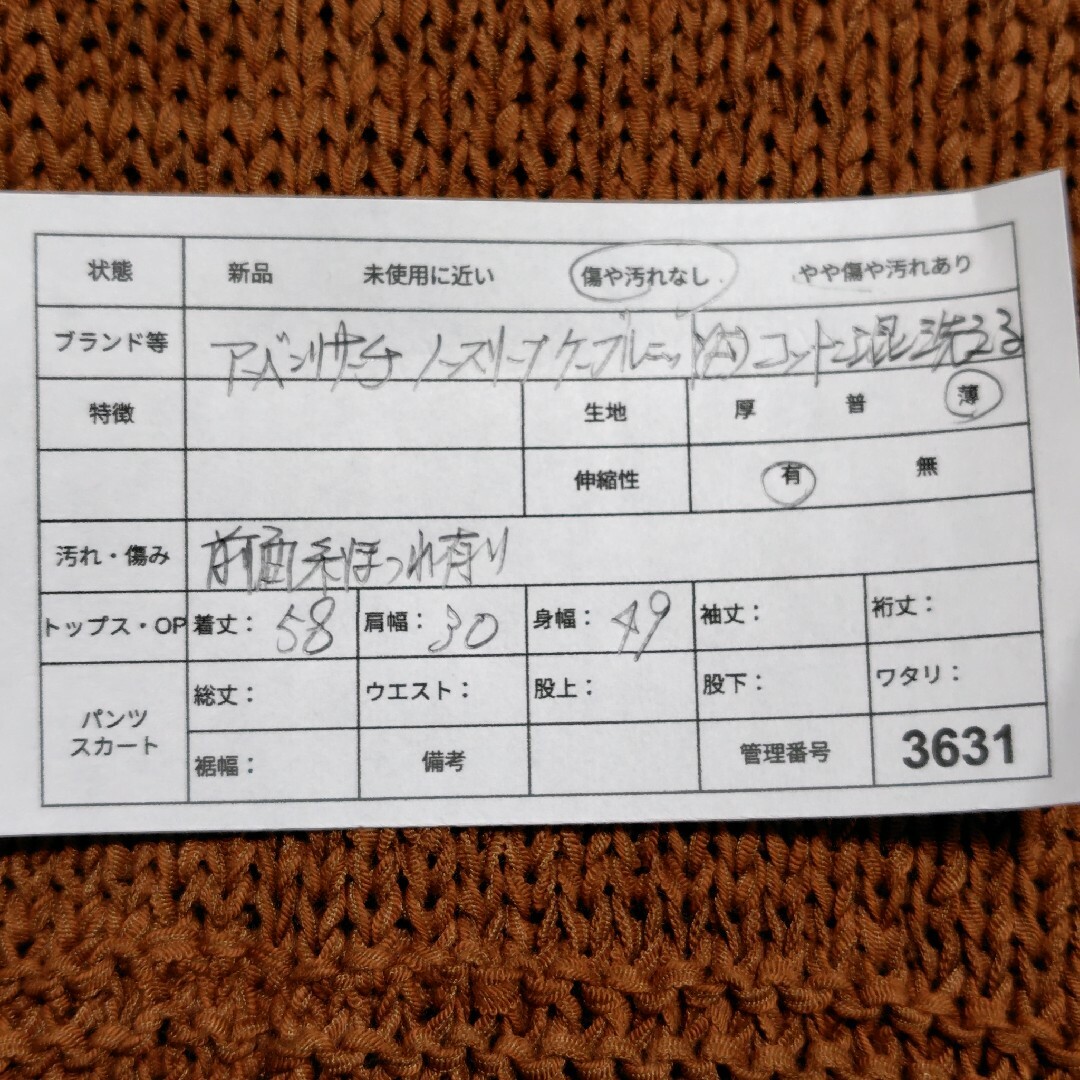 状態 新品 未使用に近い 傷や汚れなし やや傷や汚れあり
ブランド等 アーバンリサーチ ノースリーブケーブルニット コットン混 洗える
特徴 生地 厚 普 薄
伸縮性 有 無
汚れ・傷み 前面糸ほつれ有り
トップス・OP 着丈： 58 肩幅： 30 身幅： 49 袖丈： 裄丈：
パンツ 総丈： ウエスト： 股上： 股下： ワタリ：
スカート 裾幅： 備考 管理番号 3631